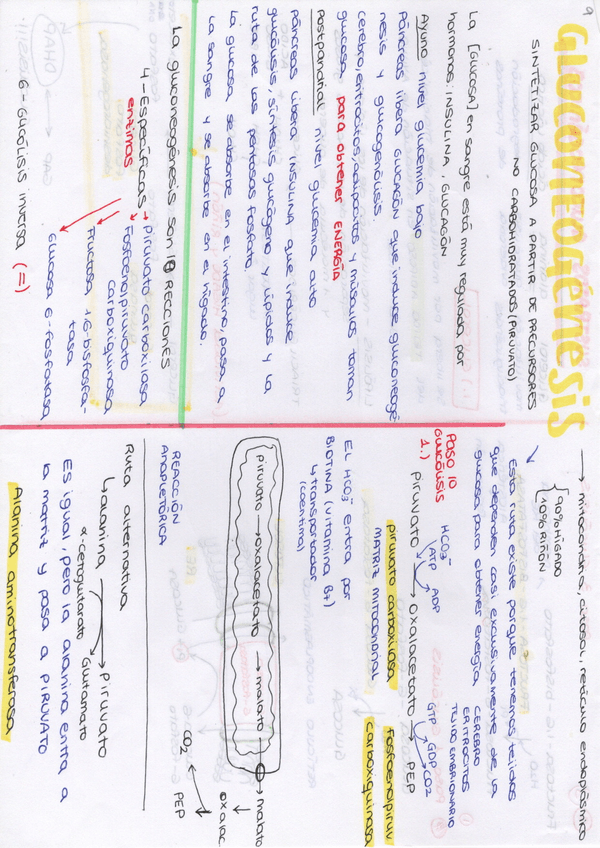 9
GLUCONEOGÉNESIS
SINTETIZAR GLUCOSA A PARTIR DE PRECURSORES
NO CARBOHIDRATADOS (PIRUVATO)
La [GLUCOSA] en sangre está muy regulada por
hormonas: INSULINA, GLUCAGÓN
Ayuno nivel glucemia bajo
Páncreas libera GLUCAGÓN que induce gluconeogé
nesis y glucogenólisis.
Cerebro, eritrocitos, adipocitos y músculos toman
glucosa para obtener ENERGÍA
Postpandrial nivel glucemia alto
Páncreas libera INSULINA que induce
glucólisis, síntesis glucógeno y lípidos y la
ruta de las pentosas fosfato.
La glucosa se absorbe en el intestino, pasa a
la sangre y se absorbe en el hígado.
La gluconeogénesis son 10 REACCIONES
4 - Específicas → Piruvato carboxilasa
enzimas
Fosfoenolpiruvato
carboxiquinasa
Fructosa 1,6-bisfosfa-
tasa
Glucosa 6-fosfatasa
6 - Glucólisis inversa (=)
→ mitocondria, citosol, retículo endoplásmico
90% HÍGADO
10% RIÑÓN
Esta ruta existe porque tenemos tejidos
que dependen casi exclusivamente de la
glucosa para obtener energía.
CEREBRO
ERITROCITOS
TEJIDO EMBRIONARIO
PASO 10
GLUCÓLISIS
HCO3- ATP ADP
GTP GDP CO2
1.) Piruvato → Oxalacetato → PEP
piruvato carboxilasa
MATRIZ MITOCONDRIAL
fosfoenolpiruv
carboxiquinasa
EL HCO3- entra por
BIOTINA (vitamina B7)
↳ transportador
(coenzima)
piruvato → oxalacetato → malato → malato
oxalac.
CO2
PEP
REACCIÓN
ANAPLERÓTICA
Ruta alternativa
↳ alanina → piruvato
α-cetoglutarato Glutamato
Es igual, pero la alanina entra a
la matriz y pasa a PIRUVATO
Alanina aminotransferasa